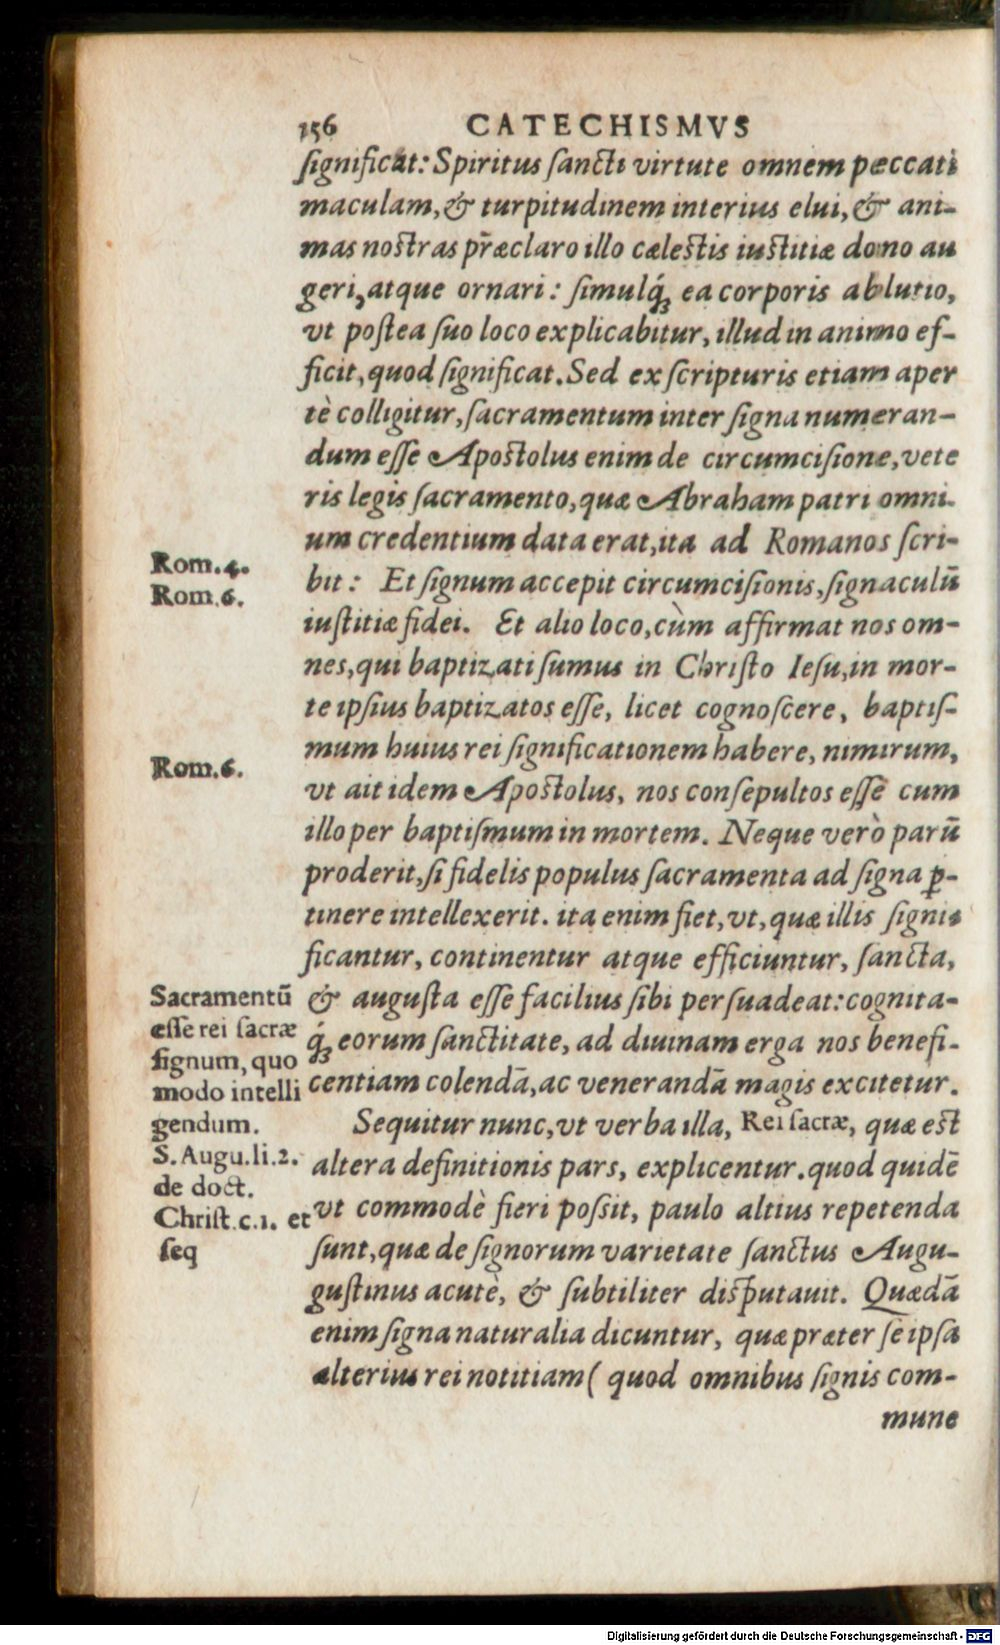 156 CATECHISMVS
significat: Spiritus sancti virtute omnem peccati
maculam, & turpitudinem interius elui, & ani-
mas nostras præclaro illo cælestis iustitiæ dono au
geri, atque ornari: simulq́ꝫ ea corporis ablutio,
vt postea suo loco explicabitur, illud in animo ef-
ficit, quod significat. Sed ex scripturis etiam aper
tè colligitur, sacramentum inter signa numeran-
dum esse Apostolus enim de circumcisione, vete
ris legis sacramento, quæ Abraham patri omni-
um credentium data erat, ita ad Romanos scri-
bit: Et signum accepit circumcisionis, signaculū
iustitiæ fidei. Et alio loco, cùm affirmat nos om-
nes, qui baptizati sumus in Christo Iesu, in mor-
te ipsius baptizatos esse, licet cognoscere, baptis-
mum huius rei significationem habere, nimirum,
vt ait idem Apostolus, nos consepultos esse cum
illo per baptismum in mortem. Neque verò parū
proderit, si fidelis populus sacramenta ad signa ꝑ-
tinere intellexerit. ita enim fiet, vt, quæ illis signi-
ficantur, continentur atque efficiuntur, sancta,
& augusta esse facilius sibi persuadeat: cognita-
q́ꝫ eorum sanctitate, ad diuinam erga nos benefi-
centiam colendā, ac venerandā magis excitetur.
Sequitur nunc, vt verba illa, Rei sacræ, quæ est
altera definitionis pars, explicentur. quod quidē
vt commodè fieri possit, paulo altius repetenda
sunt, quæ de signorum varietate sanctus Augu-
gustinus acutè, & subtiliter disputauit. Quædā
enim signa naturalia dicuntur, quæ præter se ipsa
alterius rei notitiam ( quod omnibus signis com-
mune
Rom.4.
Rom.6.
Rom.6.
Sacramentū
esse rei sacræ
signum, quo
modo intelli
gendum.
S. Augu.li.2.
de doct.
Christ.c.1. et
seq
Digitalisierung gefördert durch die Deutsche Forschungsgemeinschaft - DFG